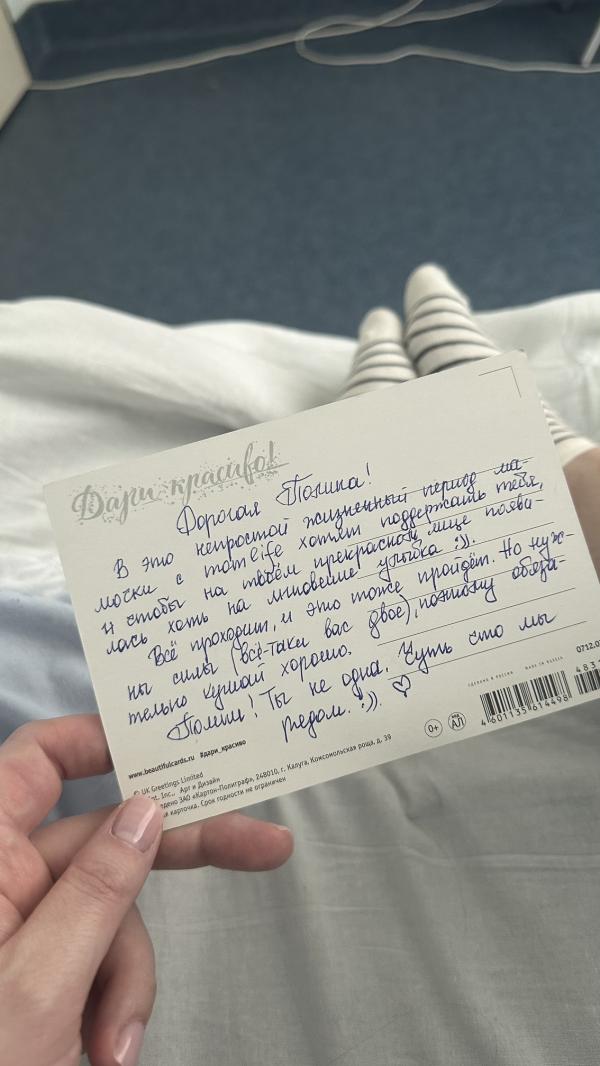 Дари красиво!
Дорогая Полина!
В это непростой жизненный период ма-
мочки с momlife хотят поддержать тебя,
и чтобы на твоём прекрасном лице появи-
лась хоть на мгновение улыбка :)).
Всё проходит, и это тоже пройдёт. Но нуж-
ны силы (всё-таки вас двое), поэтому обяза-
тельно кушай хорошо.
Полин! Ты не одна. Чуть что мы
рядом. :)). ♡
0712.0
СДЕЛАНО В РОССИИ MADE IN RUSSIA
483
4 601135 614498
0+
АЛ
www.beautifulcards.ru #дари_красиво
© UK Greetings Limited
Int. Inc., Арт и Дизайн
дено ЗАО «Картон-Полиграф», 248010, г. Калуга, Комсомольская роща, д. 39
я карточка. Срок годности не ограничен